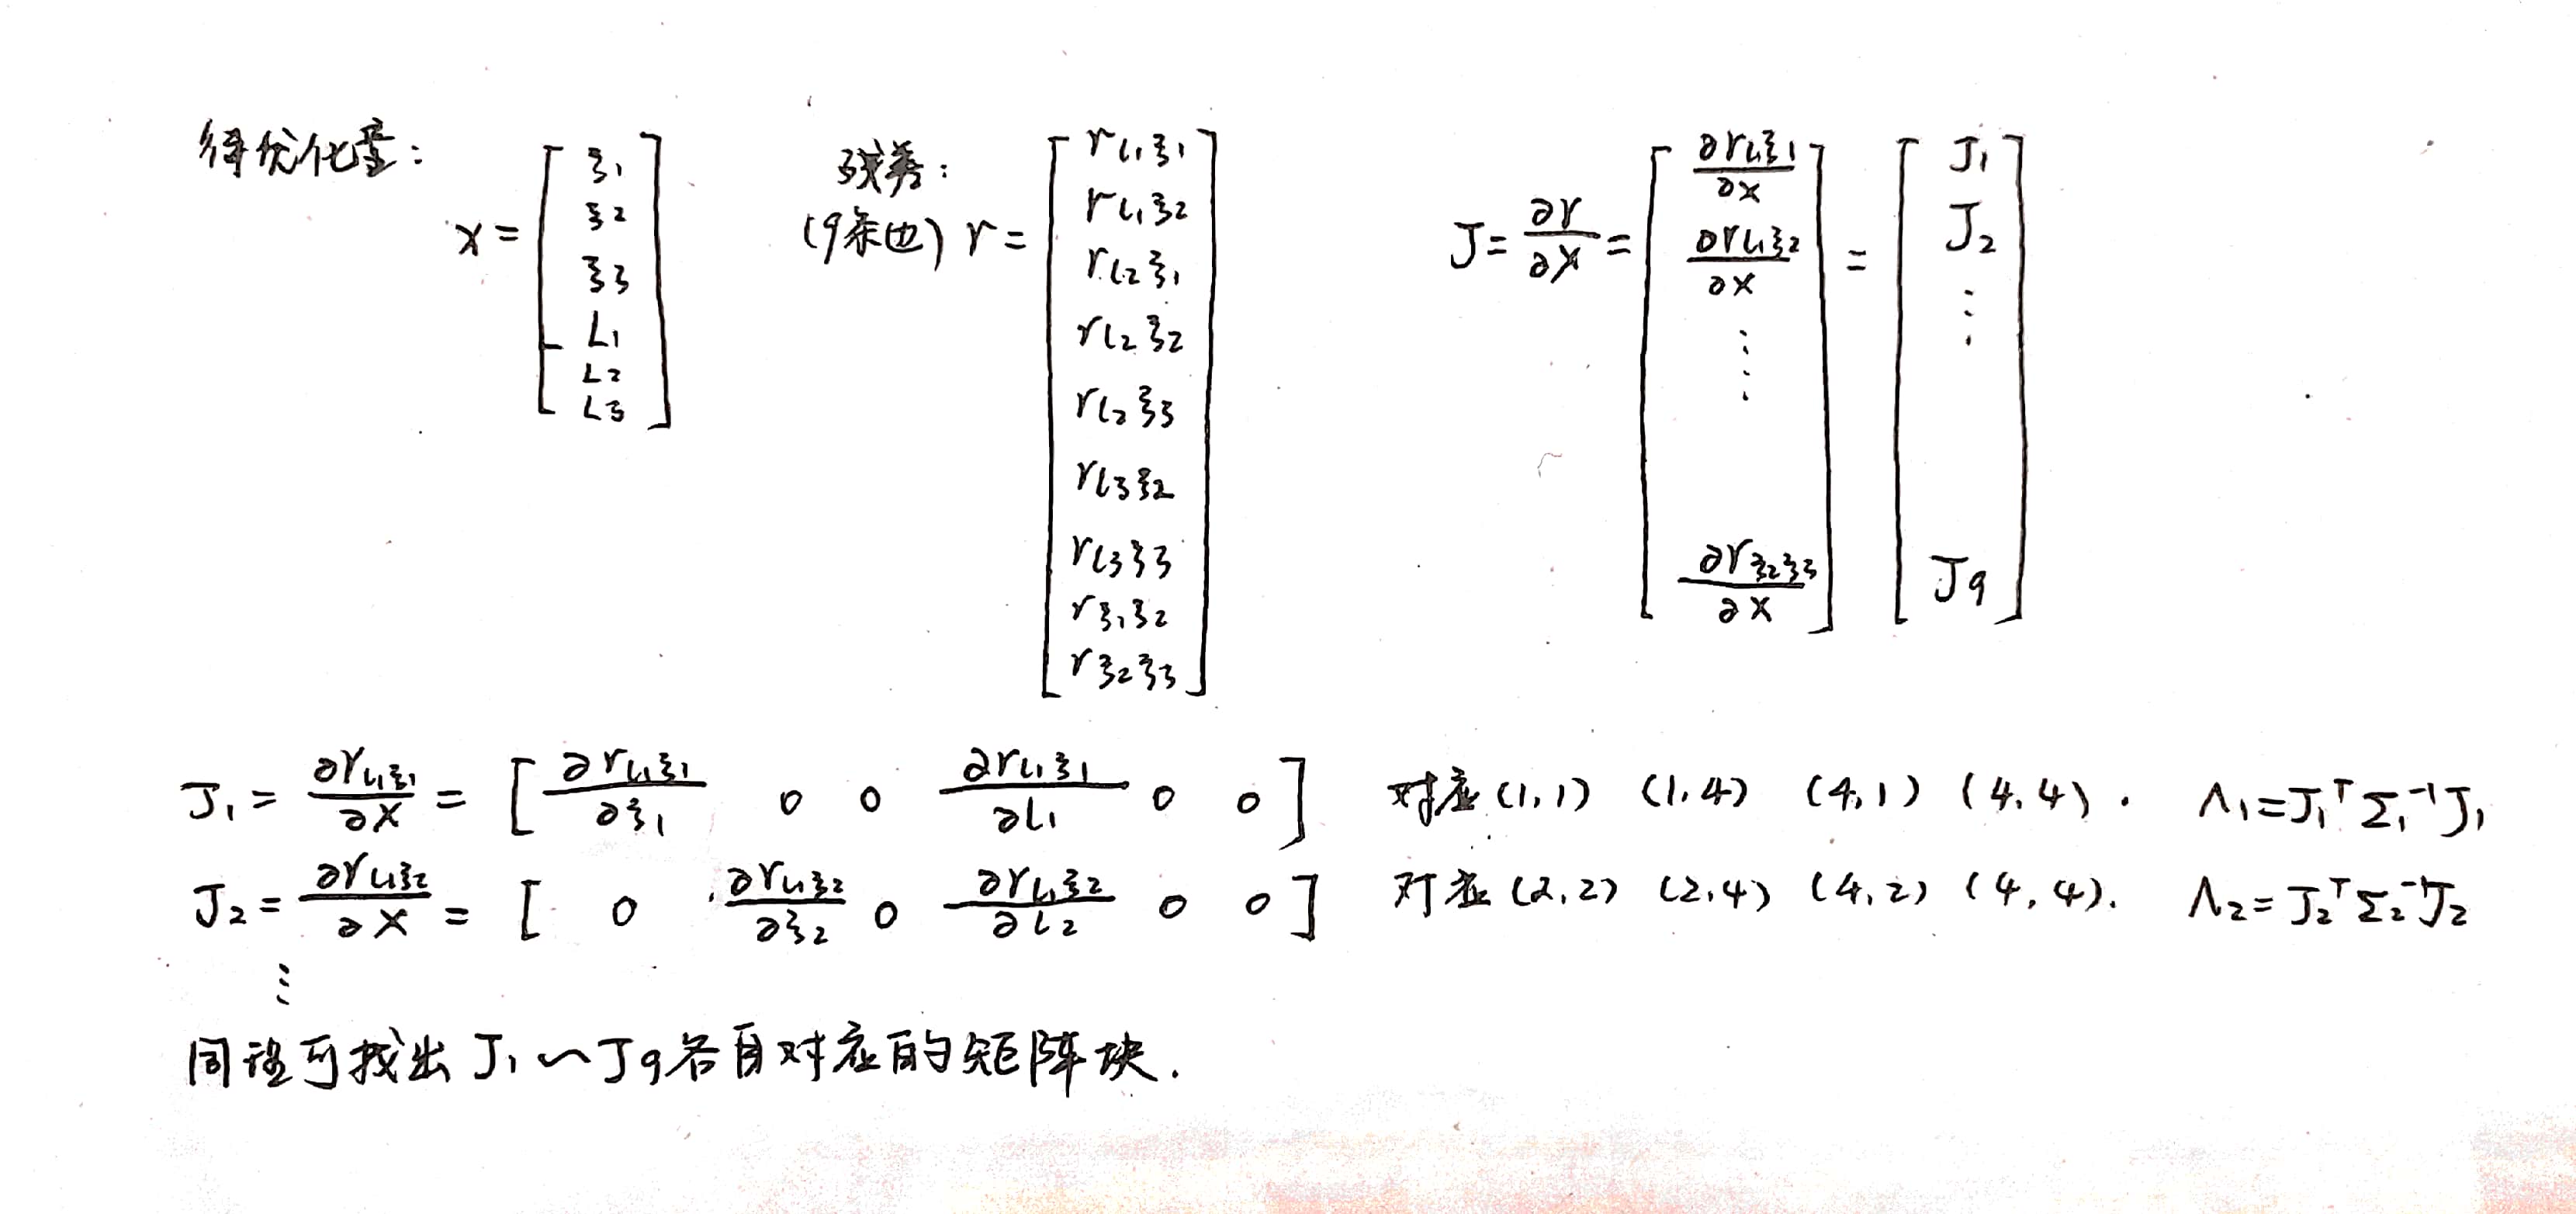 待优化量：
x = [ ξ1 ξ2 ξ3 L1 L2 L3 ]
残差：
(9条边) r = [ rL1ξ1 rL1ξ2 rL2ξ1 rL2ξ2 rL2ξ3 rL3ξ2 rL3ξ3 rξ1ξ2 rξ2ξ3 ]
J = ∂r/∂x = [ ∂rL1ξ1/∂x ∂rL1ξ2/∂x ⋮ ∂rξ2ξ3/∂x ] = [ J1 J2 ⋮ J9 ]
J1 = ∂rL1ξ1/∂x = [ ∂rL1ξ1/∂ξ1 0 0 ∂rL1ξ1/∂L1 0 0 ] 对应(1,1) (1,4) (4,1) (4,4). Λ1=J1ᵀΣ1⁻¹J1
J2 = ∂rL1ξ2/∂x = [ 0 ∂rL1ξ2/∂ξ2 0 ∂rL1ξ2/∂L2 0 0 ] 对应(2,2) (2,4) (4,2) (4,4). Λ2=J2ᵀΣ2⁻¹J2
⋮
同理可找出 J1~J9各自对应的矩阵块.